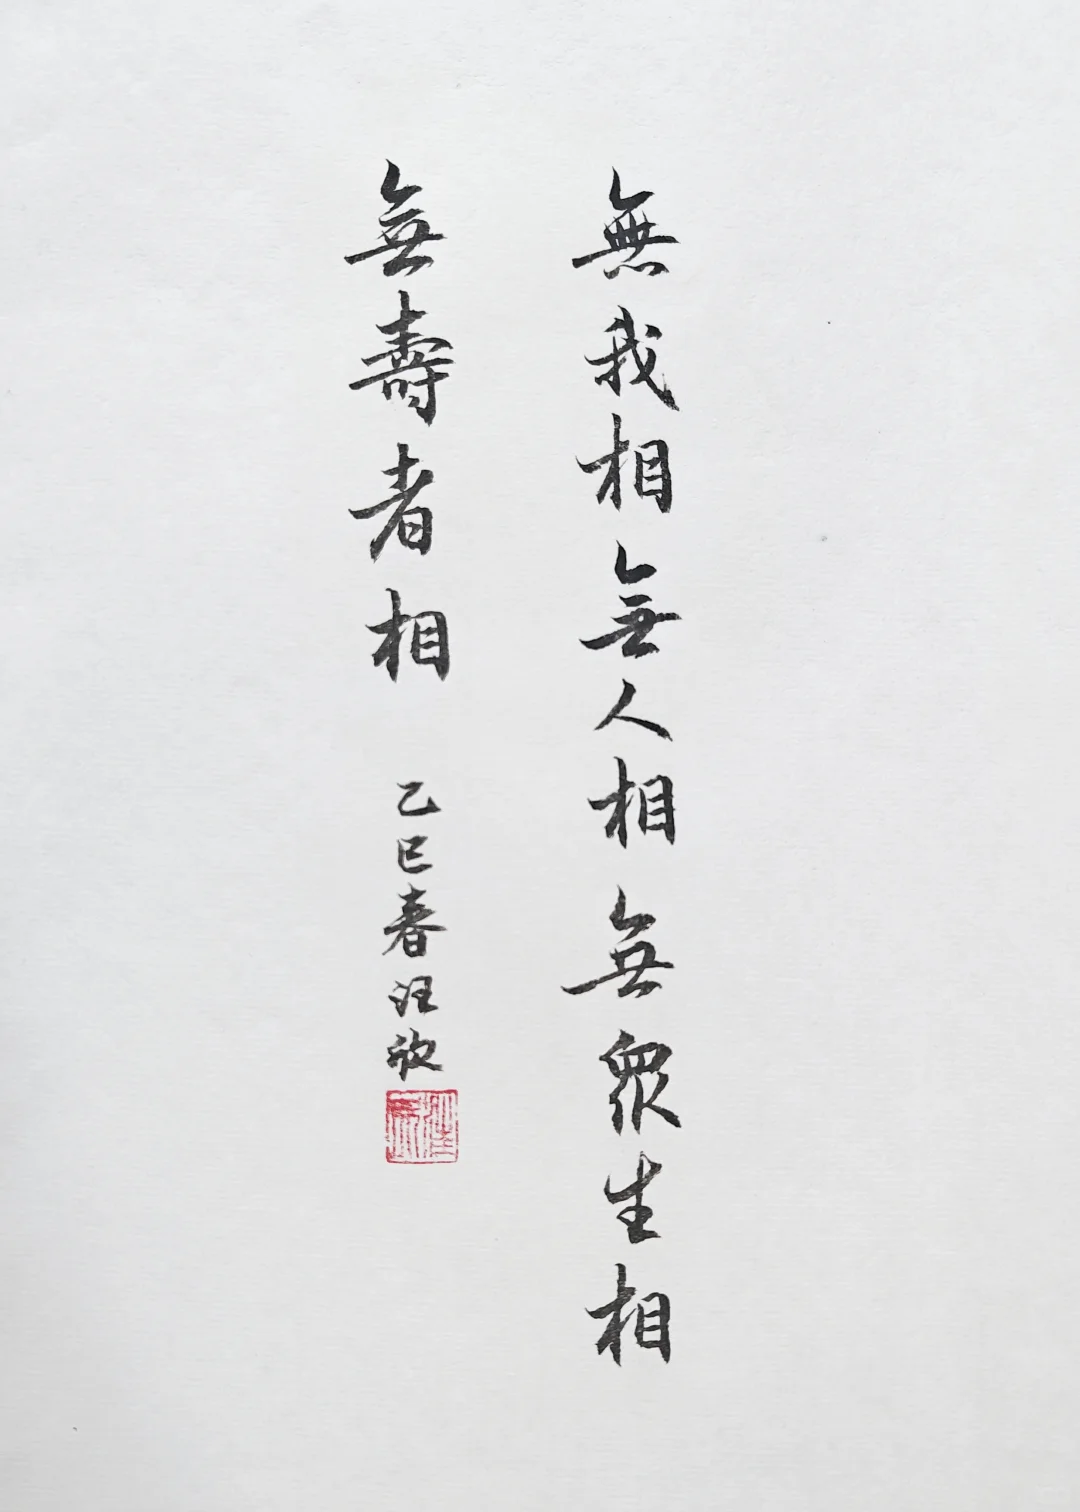 無我相無人相無眾生相
無壽者相
乙巳春汪欣